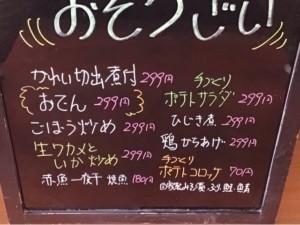 おそうざい
かれい切出煮付 299円
おでん 299円
ごぼう炒め 299円
生ワカメと
いか炒め 299円
赤魚 一夜干 焼魚 180円
手づくり
ポテトサラダ 299円
ひじき煮 299円
鶏からあげ 299円
手づくり
ポテトコロッケ 70円